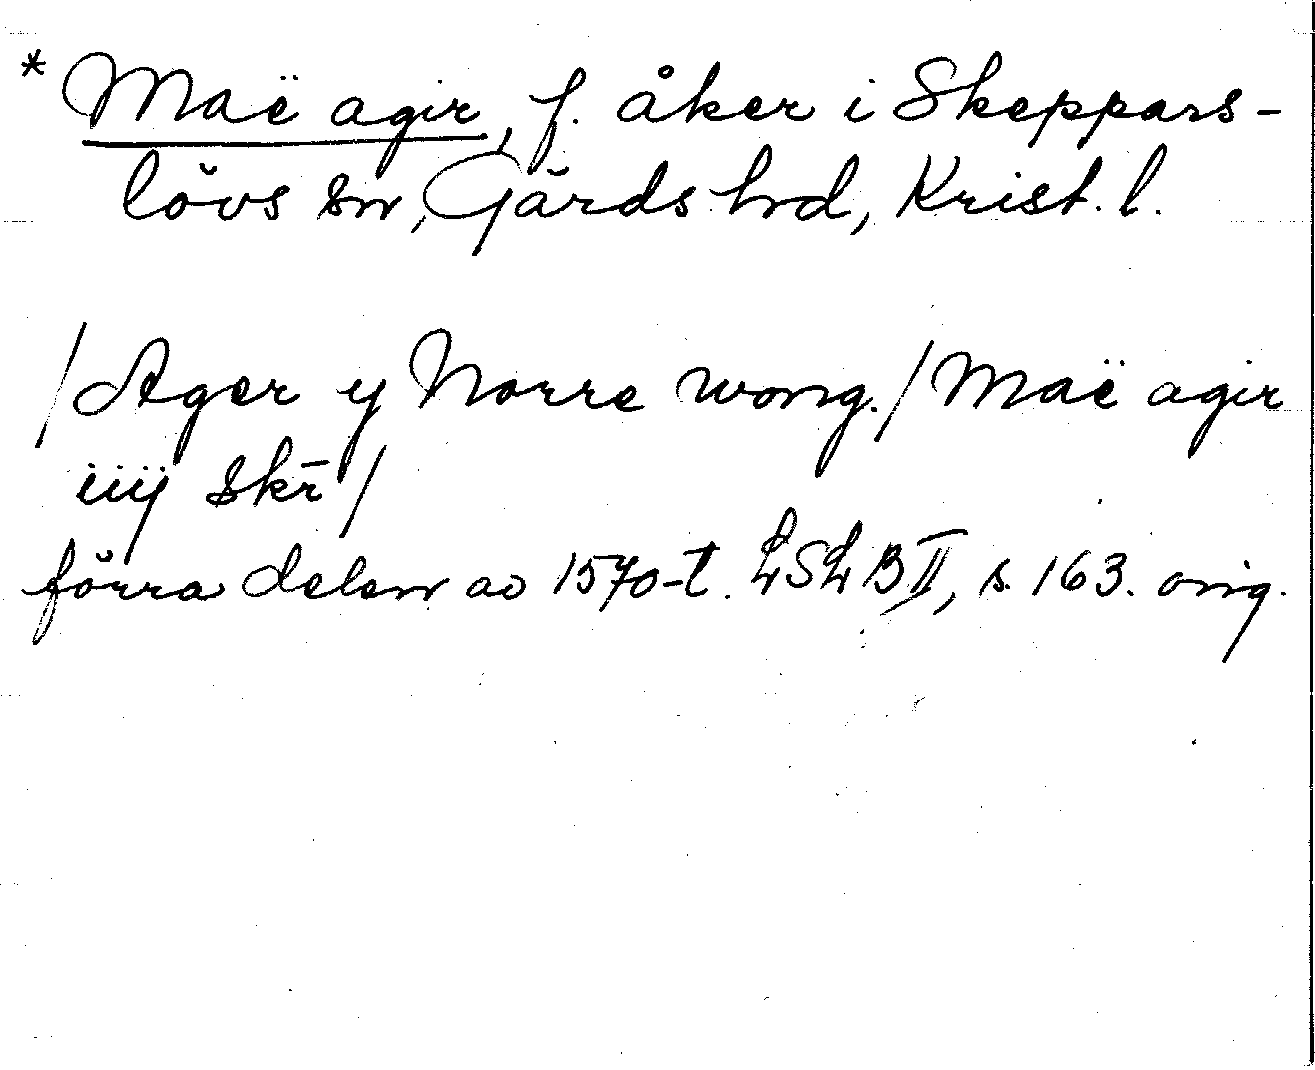 * Maë agir, f. åker i Skeppars-
lövs sn, Gärds hrd, Krist. l.
/Ager y Norre wong./Maë agir
iiij skr̄/
förra delen av 1570-t. LSL B II, s. 163. orig.